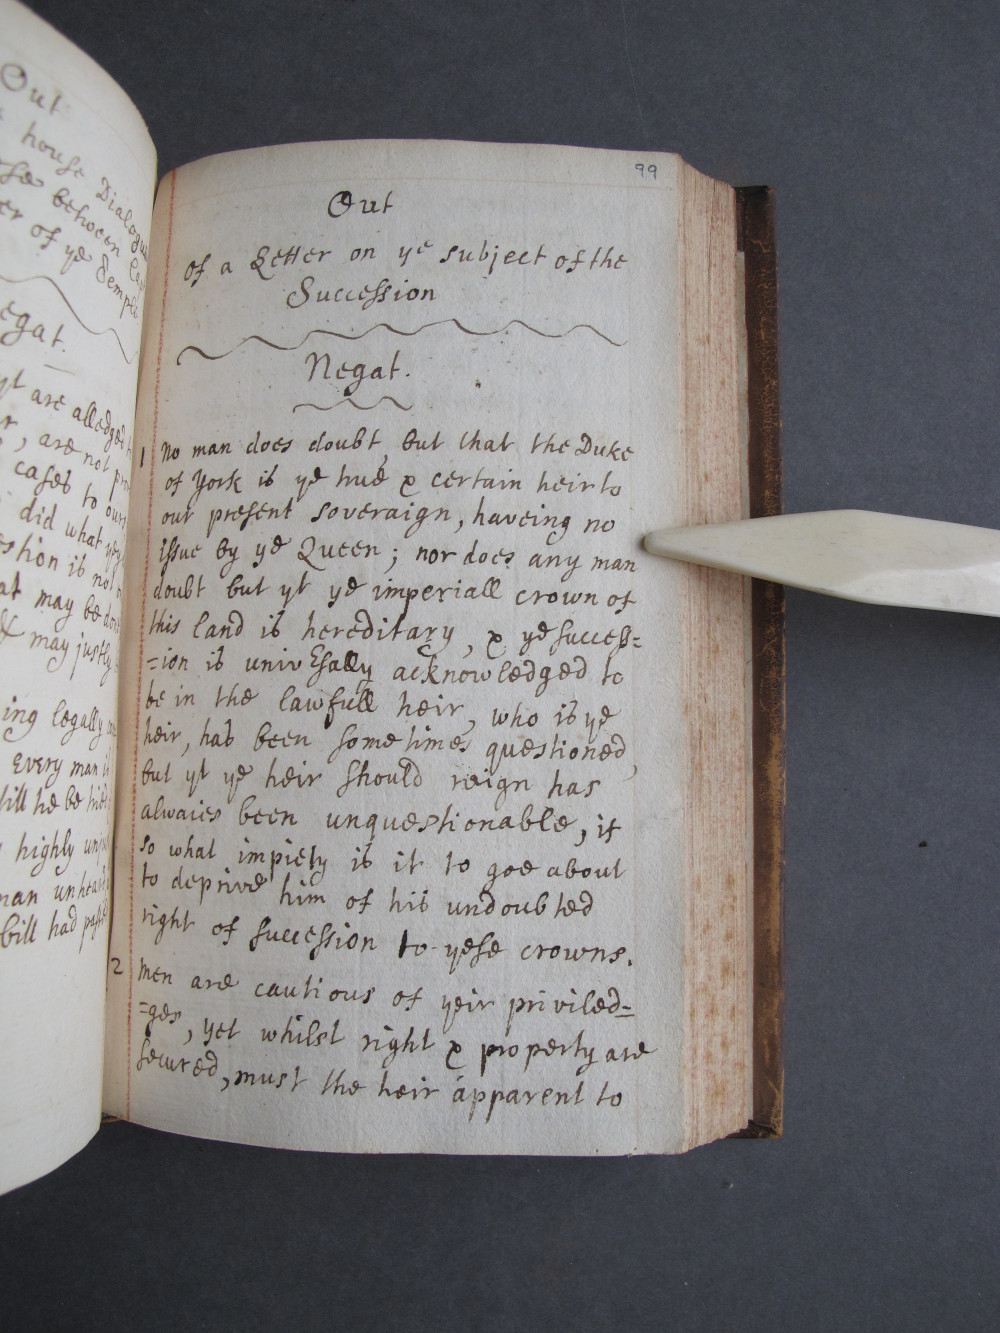 Out
house Dialogue
between
er of ye Temple
egat.
yt are alledged
r, are not
cases to ours
did what
stion is not
may be done
may justly
ing legally
Every man is
till he be
highly unjust
man unheard
bill had past
99
Out
of a Letter on ye subject of the
Succession
Negat.
1 No man does doubt, but that the Duke
of York is ye true & certain heir to
our present soveraign, haveing no
issue by ye Queen; nor does any man
doubt but yt ye imperiall crown of
this land is hereditary, & ye success=
=ion is universally acknowledged to
be in the lawfull heir, who is ye
heir, has been sometimes questioned,
but yt ye heir should reign has
alwaies been unquestionable, if
so what impiety is it to goe about
to deprive him of his undoubted
right of succession to yese crowns.
2 Men are cautious of yeir priviled=
=ges, yet whilst right & property are
secured, must the heir apparent to